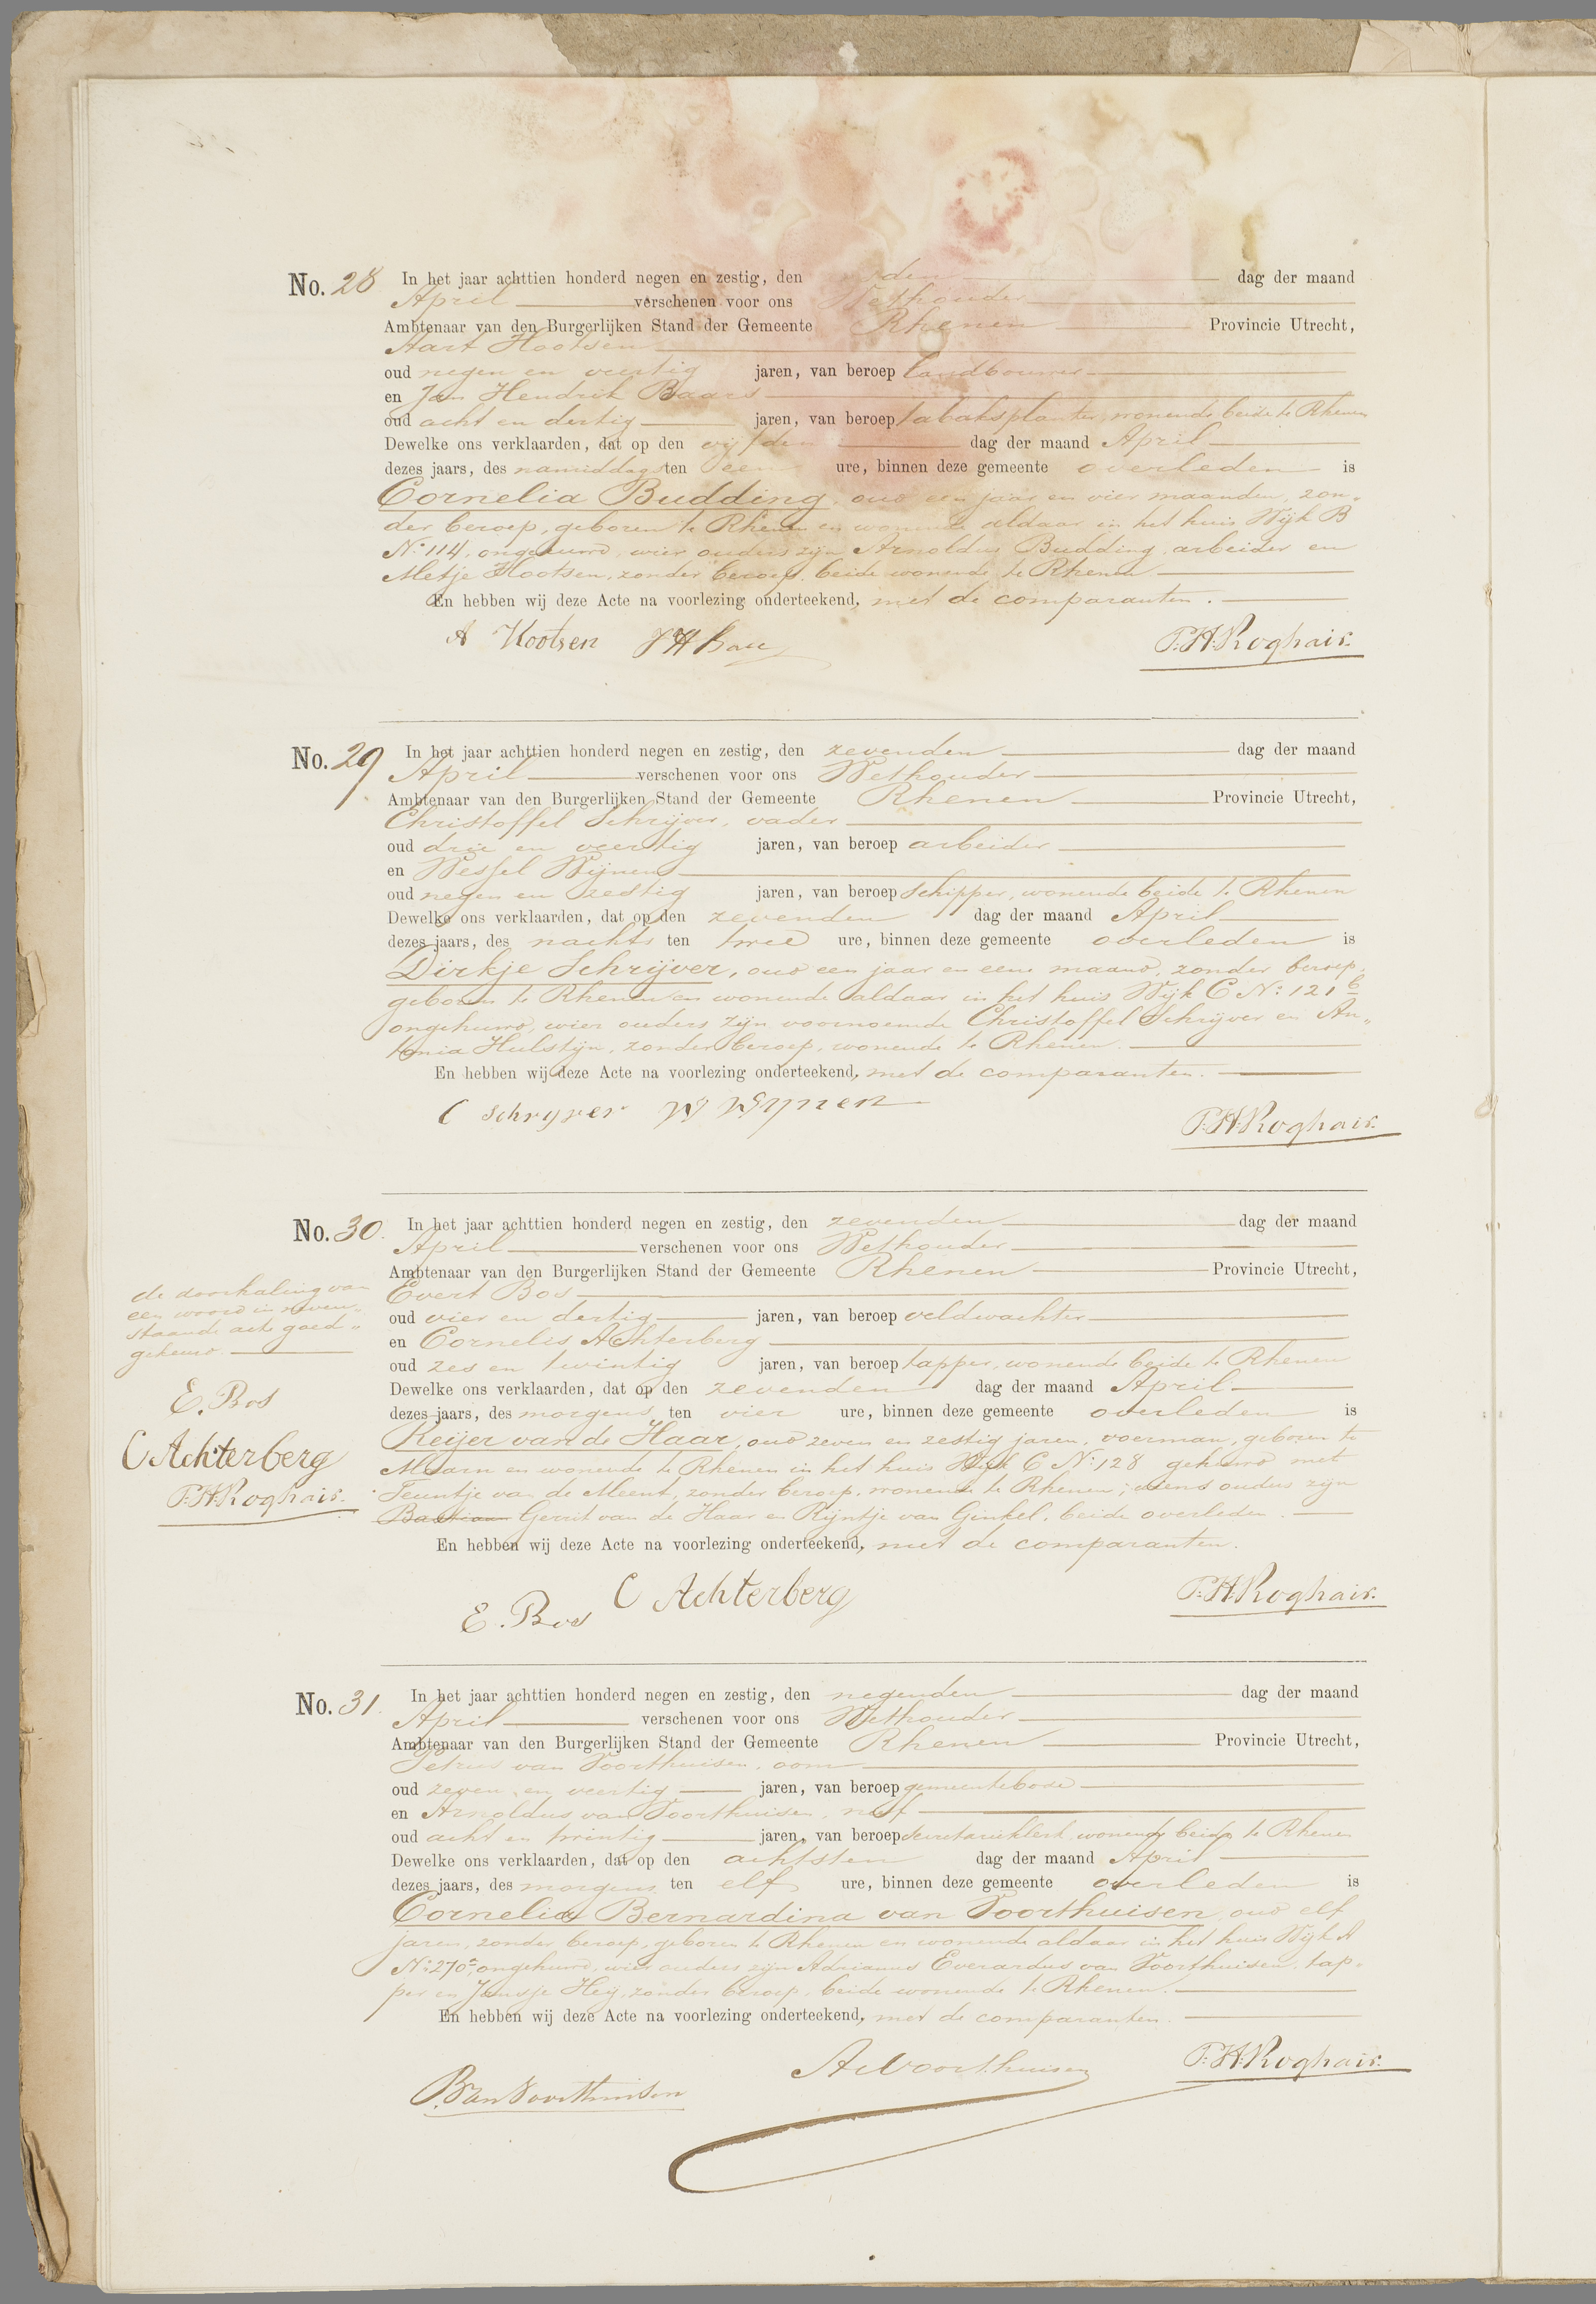 No. 28 In het jaar achttien honderd negen en zestig, den den dag der maand
April verschenen voor ons Wethouder
Ambtenaar van den Burgerlijken Stand der Gemeente Rhenen Provincie Utrecht,
Aart Kootsen
oud negen en veertig jaren, van beroep landbouwer
en Jan Hendrik Baars
oud acht en dertig jaren, van beroep tabaksplanter, wonende beide te Rhenen
Dewelke ons verklaarden, dat op den vijfden dag der maand April
dezes jaars, des namiddags ten een ure, binnen deze gemeente overleden is
Cornelia Budding, oud een jaar en vier maanden, zon„
der beroep, geboren te Rhenen en wonende aldaar in het huis Wijk B
No: 114, ongehuwd, wier ouders zijn Arnoldus Budding, arbeider en
Metje Kootsen, zonder beroep, beide wonende te Rhenen
En hebben wij deze Acte na voorlezing onderteekend, met de comparanten.
A Kootsen JH Baars P.H.Roghair.
No. 29 In het jaar achttien honderd negen en zestig, den zevenden dag der maand
April verschenen voor ons Wethouder
Ambtenaar van den Burgerlijken Stand der Gemeente Rhenen Provincie Utrecht,
Christoffel Schrijver, vader
oud drie en veertig jaren, van beroep arbeider
en Wessel Wijnen
oud negen en zestig jaren, van beroep schipper, wonende beide te Rhenen
Dewelke ons verklaarden, dat op den zevenden dag der maand April
dezes jaars, des nachts ten twee ure, binnen deze gemeente overleden is
Dirkje Schrijver, oud een jaar en eene maand, zonder beroep,
geboren te Rhenen en wonende aldaar in het huis Wijk C No: 121 b
ongehuwd, wier ouders zijn voornoemde Christoffel Schrijver en An„
tonia Hulstijn, zonder beroep, wonende te Rhenen.
En hebben wij deze Acte na voorlezing onderteekend, met de comparanten.
C Schryver W Wynen P.H.Roghair.
No. 30. In het jaar achttien honderd negen en zestig, den zevenden dag der maand
April verschenen voor ons Wethouder
Ambtenaar van den Burgerlijken Stand der Gemeente Rhenen Provincie Utrecht,
Evert Bos
oud vier en dertig jaren, van beroep veldwachter
en Cornelis Achterberg
oud zes en twintig jaren, van beroep tapper, wonende beide te Rhenen
Dewelke ons verklaarden, dat op den zevenden dag der maand April
dezes jaars, des morgens ten vier ure, binnen deze gemeente overleden is
Reijer van de Haar, oud zeven en zestig jaren, voerman, geboren te
Maarn en wonende te Rhenen in het huis Wijk C No: 128 gehuwd met
Teuntje van de Meent, zonder beroep, wonende te Rhenen; wiens ouders zijn
Bastiaan Gerrit van de Haar en Rijntje van Ginkel, beide overleden.
En hebben wij deze Acte na voorlezing onderteekend, met de comparanten.
E. Bos C Achterberg P.H.Roghair.
de doorhaling van
een woord in neven„
staande acte goed„
gekeurd.
E. Bos
C Achterberg
P.H.Roghair.
No. 31. In het jaar achttien honderd negen en zestig, den negenden dag der maand
April verschenen voor ons Wethouder
Ambtenaar van den Burgerlijken Stand der Gemeente Rhenen Provincie Utrecht,
Petrus van Voorthuisen, oom
oud zeven en veertig jaren, van beroep gemeentebode
en Arnoldus van Voorthuisen, neef
oud acht en twintig jaren, van beroep secretarieklerk wonende beide te Rhenen
Dewelke ons verklaarden, dat op den achtsten dag der maand April
dezes jaars, des morgens ten elf ure, binnen deze gemeente overleden is
Cornelia Bernardina van Voorthuisen, oud elf
jaren, zonder beroep, geboren te Rhenen en wonende aldaar in het huis Wijk A
No: 270a, ongehuwd, wier ouders zijn Adrianus Everardus van Voorthuisen, tap„
per en Jansje Heij, zonder beroep, beide wonende te Rhenen.
En hebben wij deze Acte na voorlezing onderteekend, met de comparanten.
P. van Voorthuisen AvVoorthuisen P.H.Roghair.